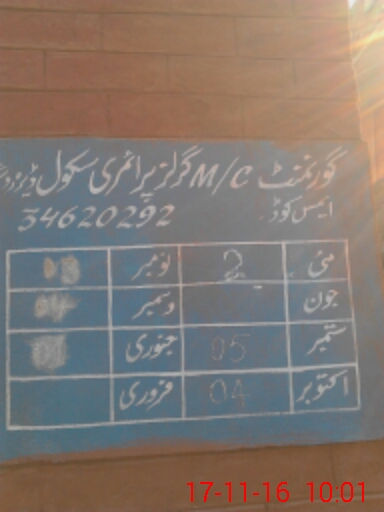 گورنمنٹ M/C گرلز پرائمری سکول
ایمس کوڈ
34620292
مئی 2 نومبر 03
جون دسمبر 04
ستمبر 05 جنوری
اکتوبر 04 فروری
17-11-16 10:01